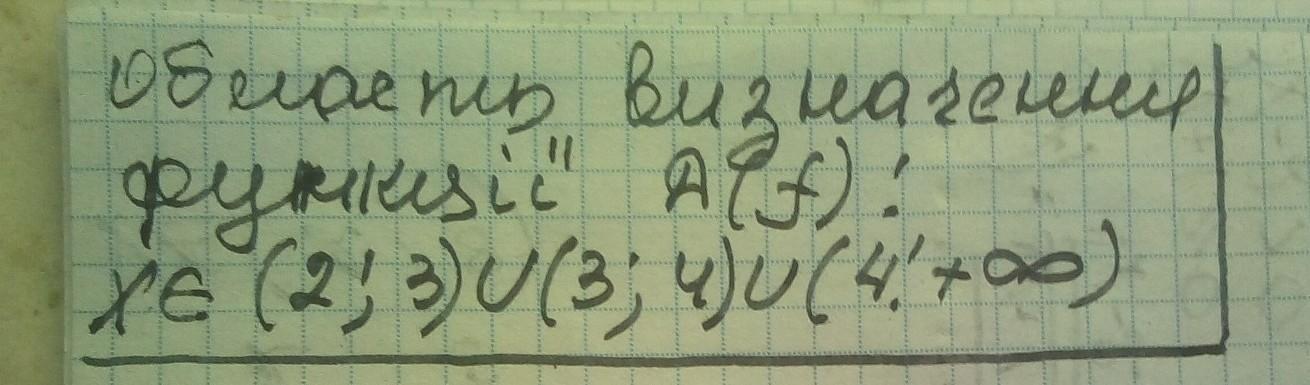 Область визначення
функції Д(f):
x∈ (2; 3)∪(3; 4)∪(4; +∞)